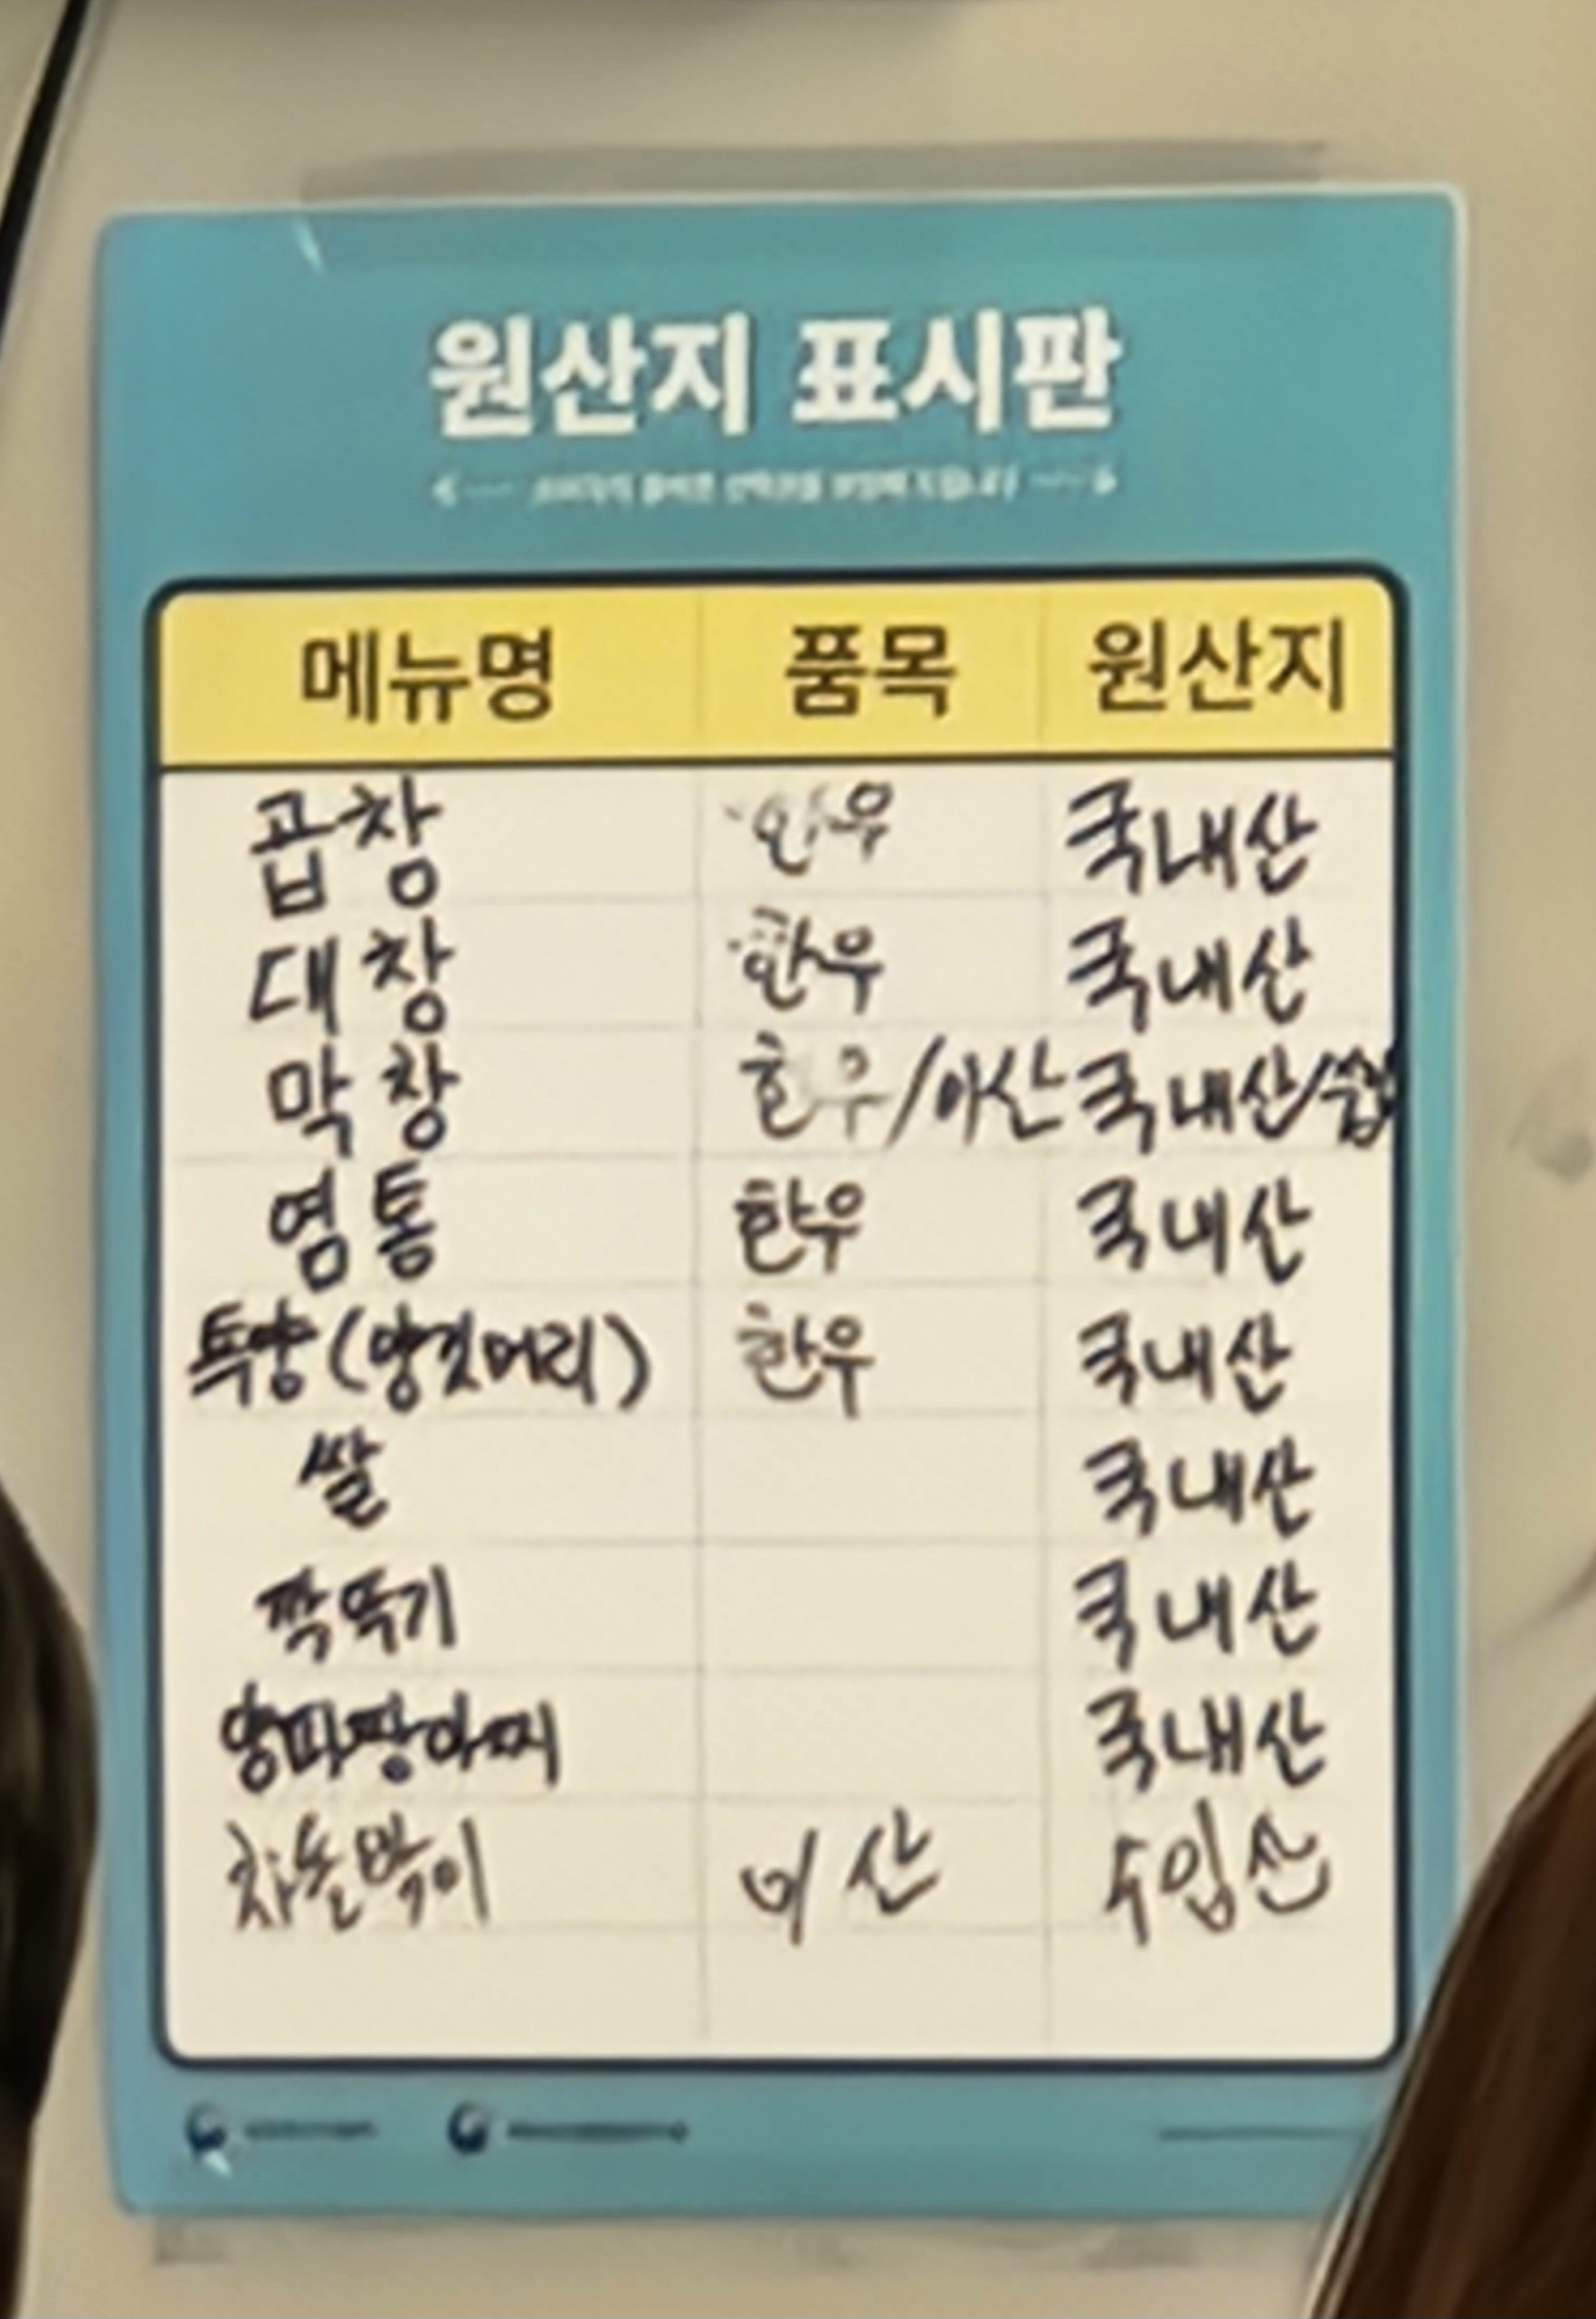 원산지 표시판
메뉴명 품목 원산지
곱창 한우 국내산
대창 한우 국내산
막창 한우/ 국내산/
염통 한우 국내산
특양(양깃머리) 한우 국내산
쌀 국내산
깍뚝기 국내산
양파짱아찌 국내산
차돌박이 미산 수입산